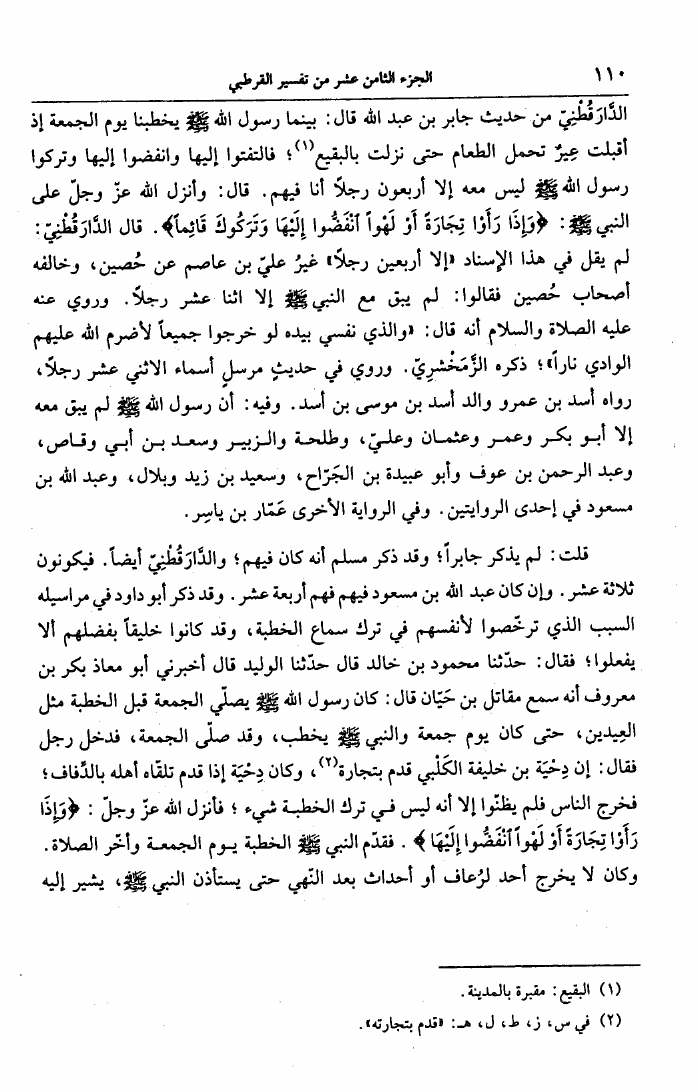 ١١٠
الجزء الثامن عشر من تفسير القرطبي
الدَّارَقُطْنِيّ من حديث جابر بن عبد الله قال: بينما رسول الله ﷺ يخطبنا يوم الجمعة إذ
أقبلت عِيرٌ تحمل الطعام حتى نزلت بالبقيع(١)؛ فالتفتوا إليها وانفضوا إليها وتركوا
رسول الله ﷺ ليس معه إلا أربعون رجلاً أنا فيهم. قال: وأنزل الله عزّ وجلّ على
النبي ﷺ: ﴿وَإِذَا رَأَوْا تِجَارَةً أَوْ لَهْواً ٱنْفَضُّوا إِلَيْهَا وَتَرَكُوكَ قَائِماً﴾. قال الدَّارَقُطْنِيّ:
لم يقل في هذا الإسناد «إلا أربعين رجلاً» غيرُ عليّ بن عاصم عن حُصين، وخالفه
أصحاب حُصين فقالوا: لم يبق مع النبي ﷺ إلا اثنا عشر رجلاً. وروي عنه
عليه الصلاة والسلام أنه قال: «والذي نفسي بيده لو خرجوا جميعاً لأضرم الله عليهم
الوادي ناراً»؛ ذكره الزَّمَخْشرِيّ. وروي في حديثٍ مرسلٍ أسماء الاثني عشر رجلاً،
رواه أسد بن عمرو والد أسد بن موسى بن أسد. وفيه: أن رسول الله ﷺ لم يبق معه
إلا أبو بكر وعمر وعثمان وعليّ، وطلحة والزبير وسعد بن أبي وقاص،
وعبد الرحمن بن عوف وأبو عبيدة بن الجَرّاح، وسعيد بن زيد وبلال، وعبد الله بن
مسعود في إحدى الروايتين. وفي الرواية الأخرى عَمّار بن ياسِر.
قلت: لم يذكر جابراً؛ وقد ذكر مسلم أنه كان فيهم؛ والدَّارَقُطْنِيّ أيضاً. فيكونون
ثلاثة عشر. وإن كان عبد الله بن مسعود فيهم فهم أربعة عشر. وقد ذكر أبو داود في مراسيله
السبب الذي ترخّصوا لأنفسهم في ترك سماع الخطبة، وقد كانوا خليقاً بفضلهم ألا
يفعلوا؛ فقال: حدّثنا محمود بن خالد قال حدّثنا الوليد قال أخبرني أبو معاذ بكر بن
معروف أنه سمع مقاتل بن حَيّان قال: كان رسول الله ﷺ يصلّي الجمعة قبل الخطبة مثل
العِيدين، حتى كان يوم جمعة والنبي ﷺ يخطب، وقد صلّى الجمعة، فدخل رجل
فقال: إن دِحْيَة بن خليفة الكَلْبي قدم بتجارة(٢)، وكان دِحْيَة إذا قدم تلقّاه أهله بالدِّفاف؛
فخرج الناس فلم يظنّوا إلا أنه ليس في ترك الخطبة شيء؛ فأنزل الله عزّ وجلّ: ﴿وَإِذَا
رَأَوْا تِجَارَةً أَوْ لَهْواً ٱنْفَضُّوا إِلَيْهَا﴾. فقدّم النبي ﷺ الخطبة يوم الجمعة وأخّر الصلاة.
وكان لا يخرج أحد لرُعاف أو أحداث بعد النّهي حتى يستأذن النبي ﷺ، يشير إليه
(١) البقيع: مقبرة بالمدينة.
(٢) في س، ز، ط، ل، هـ: «قدم بتجارته».